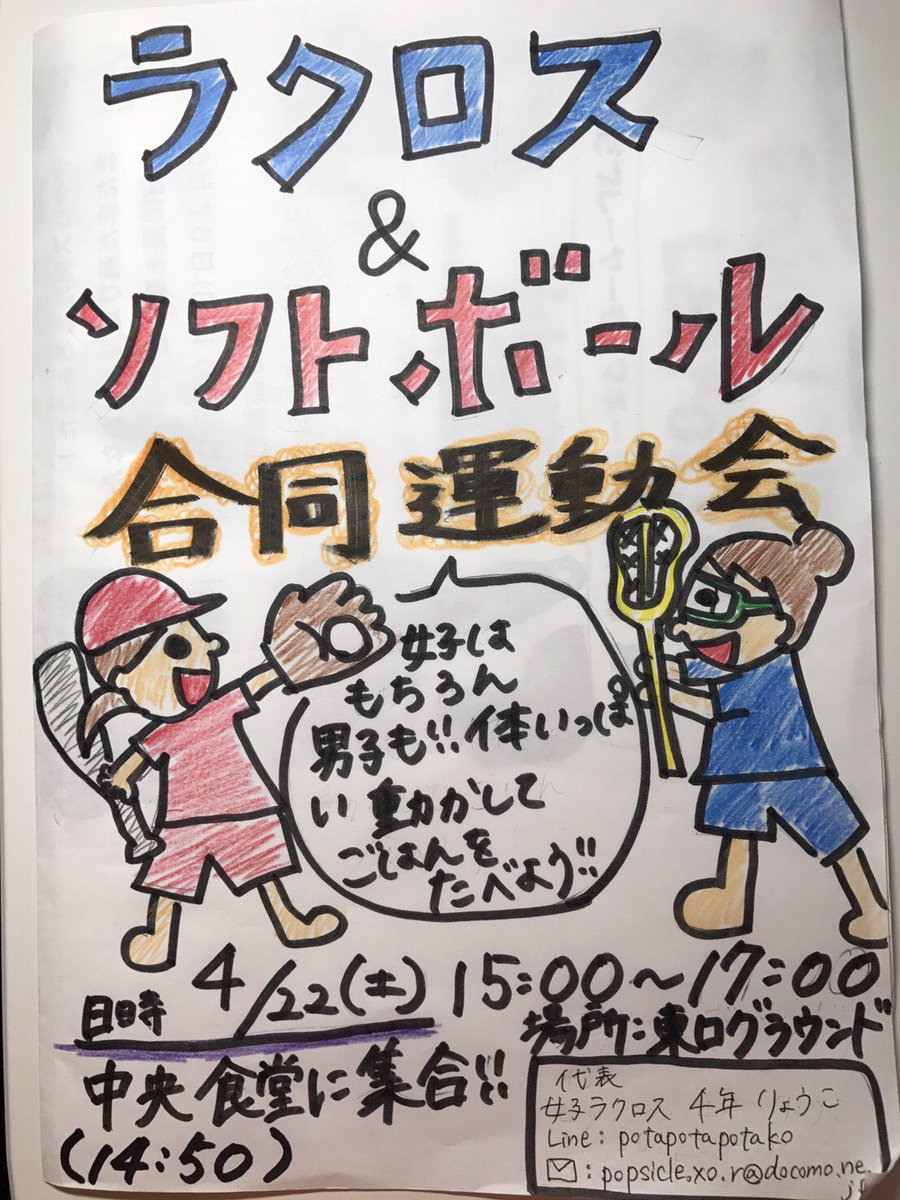 ラクロス
&
ソフトボール
合同運動会
女子は
もちろん
男子も!!体いっぱ
い動かして
ごはんを
たべよう!!
日時 4/22(土) 15:00~17:00
場所:東口グラウンド
中央食堂に集合!!
(14:50)
代表
女子ラクロス 4年 りょうこ
Line: potapotapotako
✉:popsicle.xo.r@docomo.ne.
jp